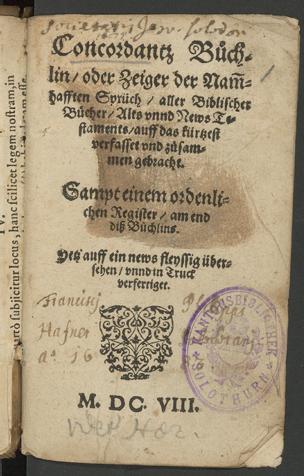 Concordantz Bůch-
lin / oder Zeiger der Nam̃-
hafften Sprüch / aller Biblischer
Bücher / Alts vnnd News Te-
staments / auff das kürtzest
verfasset vnd zůsam-
men gebracht.
Sampt einem ordenli-
chen Register / am end
diß Büchlins.
Jetz auff ein news fleyssig über-
sehen / vnnd in Truck
verfertiget.
Francisci
Hafner
aº 16
KANTONSBIBLIOTHEK SOLOTHURN
M. DC. VIII.
IV.
subjicitur locus, hanc scilicet legem nostram, in